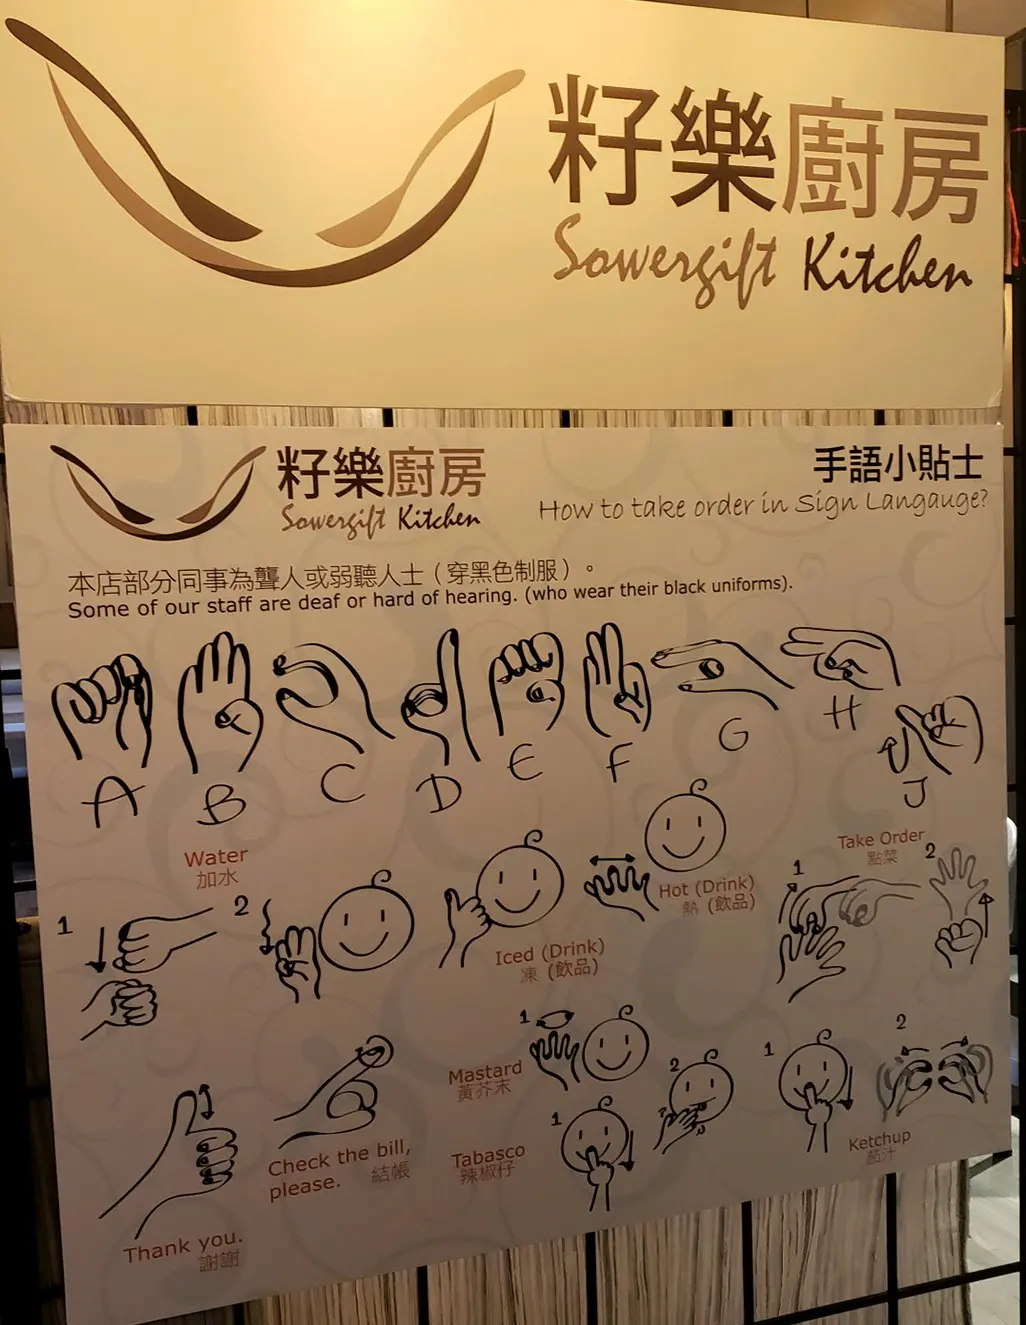 籽樂廚房
Sowergift Kitchen
籽樂廚房
Sowergift Kitchen
手語小貼士
How to take order in Sign Langauge?
本店部分同事為聾人或弱聽人士（穿黑色制服）。
Some of our staff are deaf or hard of hearing. (who wear their black uniforms).
A B C D E F G H J
Water
加水
1 2
Iced (Drink)
凍 (飲品)
Hot (Drink)
熱 (飲品)
Take Order
點菜
1 2
Thank you.
謝謝
Check the bill,
please. 結帳
Mastard
黃芥末
1
Tabasco
辣椒仔
1 2
Ketchup
茄汁
1 2